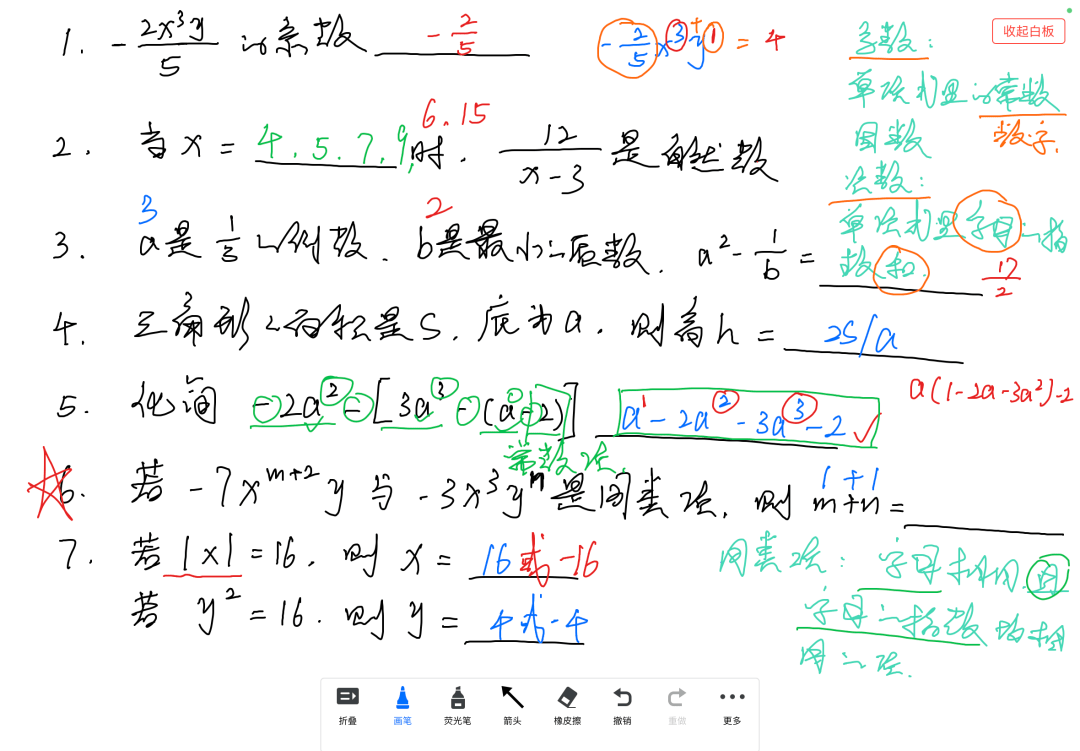 收起白板
1. -2x³y/5 的系数 -2/5
-2/5 x³y¹ = 4
系数:
单项式里的常数
因数 数字.
2. 当 x = 4.5.7.9, 6.15 时. 12/(x-3) 是自然数
次数:
单项式里字母的指
数和.
3. a是 1/3 的倒数. b是最小的质数. a² - 1/b = 17/2
3 2
4. 三角形的面积是S. 底为a. 则高h = 2S/a
5. 化简 -2a²-[3a³-(a-2)] a¹-2a²-3a³-2
a(1-2a-3a²)-2
常数项.
6. 若 -7x^{m+2}y 与 -3x³yⁿ 是同类项. 则 m+n =
1+1
7. 若 |x| = 16. 则 x = 16或-16
若 y² = 16. 则 y = 4或-4
同类项: 字母相同.且
字母的指数均相
同的项.
折叠 画笔 荧光笔 箭头 橡皮擦 撤销 重做 更多